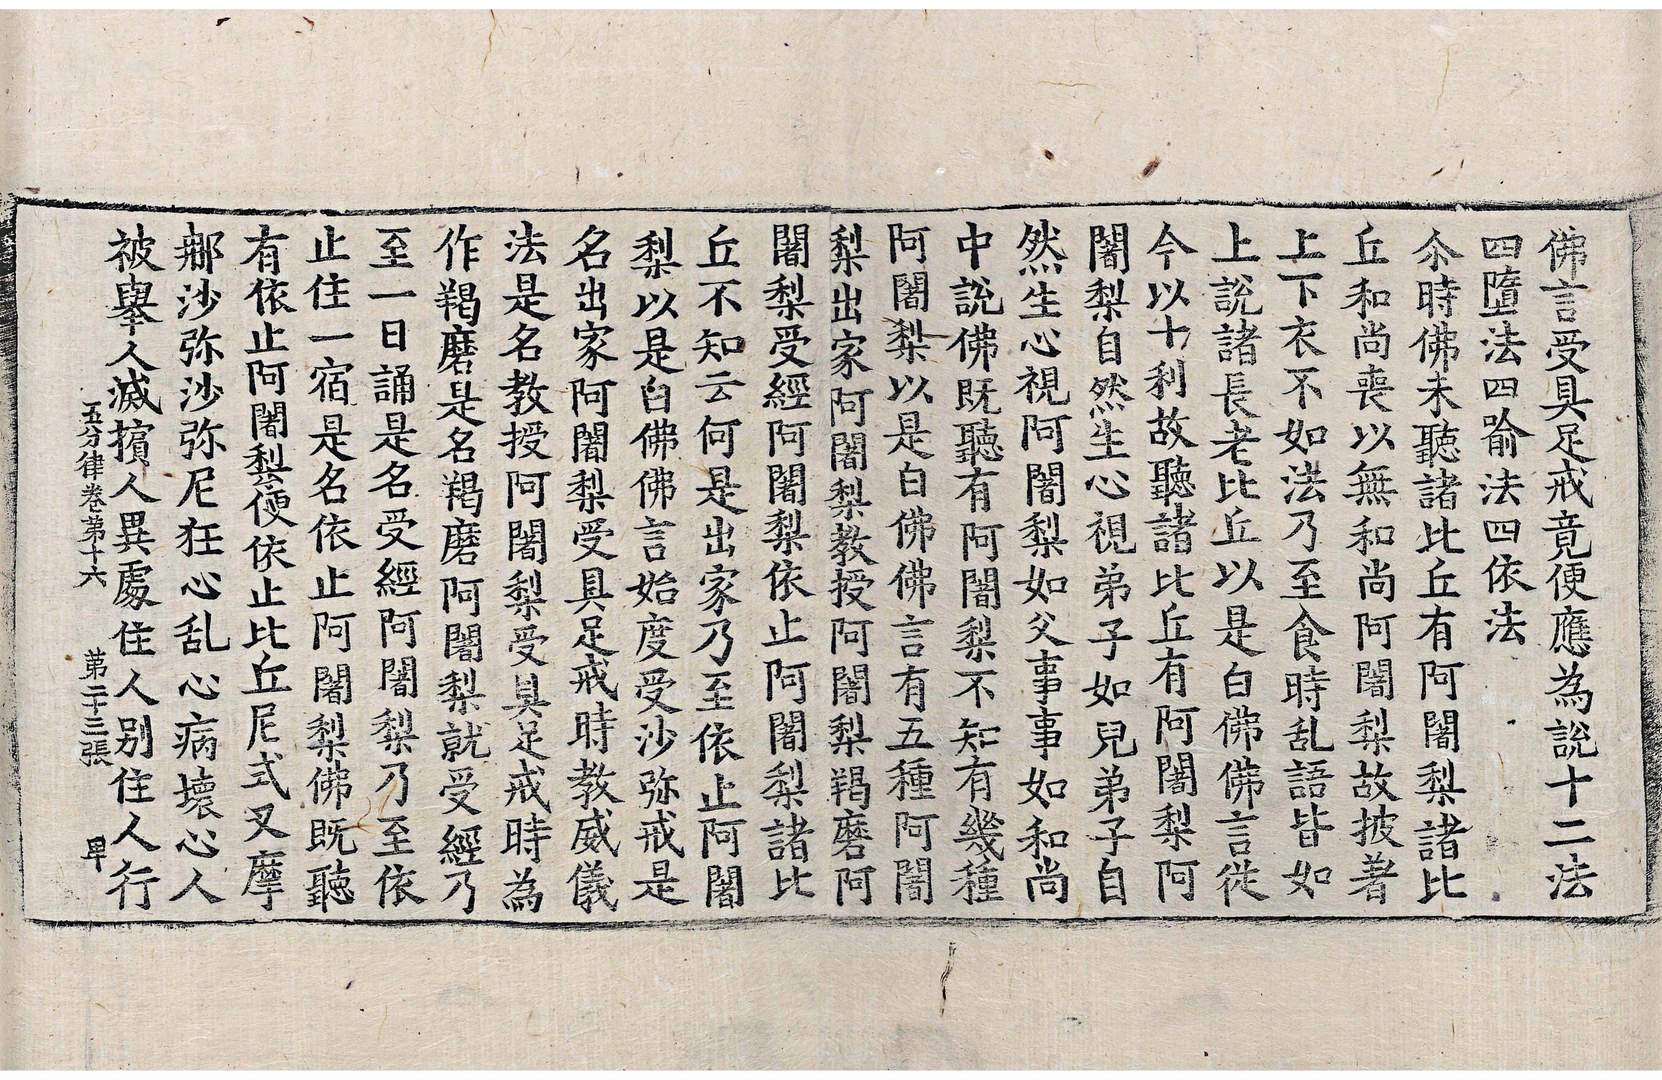 佛言受具足戒竟便應為説十二法
四墮法四喻法四依法
尒時佛未聽諸比丘有阿闍梨諸比
丘和尚喪以無和尚阿闍梨故披著
上下衣不如法乃至食時乱語皆如
上説諸長老比丘以是白佛佛言從
今以十利故聽諸比丘有阿闍梨阿
闍梨自然生心視弟子如兒弟子自
然生心視阿闍梨如父事事如和尚
中説佛既聽有阿闍梨不知有幾種
阿闍梨以是白佛佛言有五種阿闍
梨出家阿闍梨教授阿闍梨羯磨阿
闍梨受經阿闍梨依止阿闍梨諸比
丘不知云何是出家乃至依止阿闍
梨以是白佛佛言始度受沙弥戒是
名出家阿闍梨受具足戒時教威儀
法是名教授阿闍梨受具足戒時為
作羯磨是名羯磨阿闍梨就受經乃
至一日誦是名受經阿闍梨乃至依
止住一宿是名依止阿闍梨佛既聽
有依止阿闍梨便依止比丘尼式叉摩
那沙弥沙弥尼狂心乱心病壞心人
被舉人滅擯人異處住人別住人行
五分律卷第十六 第二十三張 卑